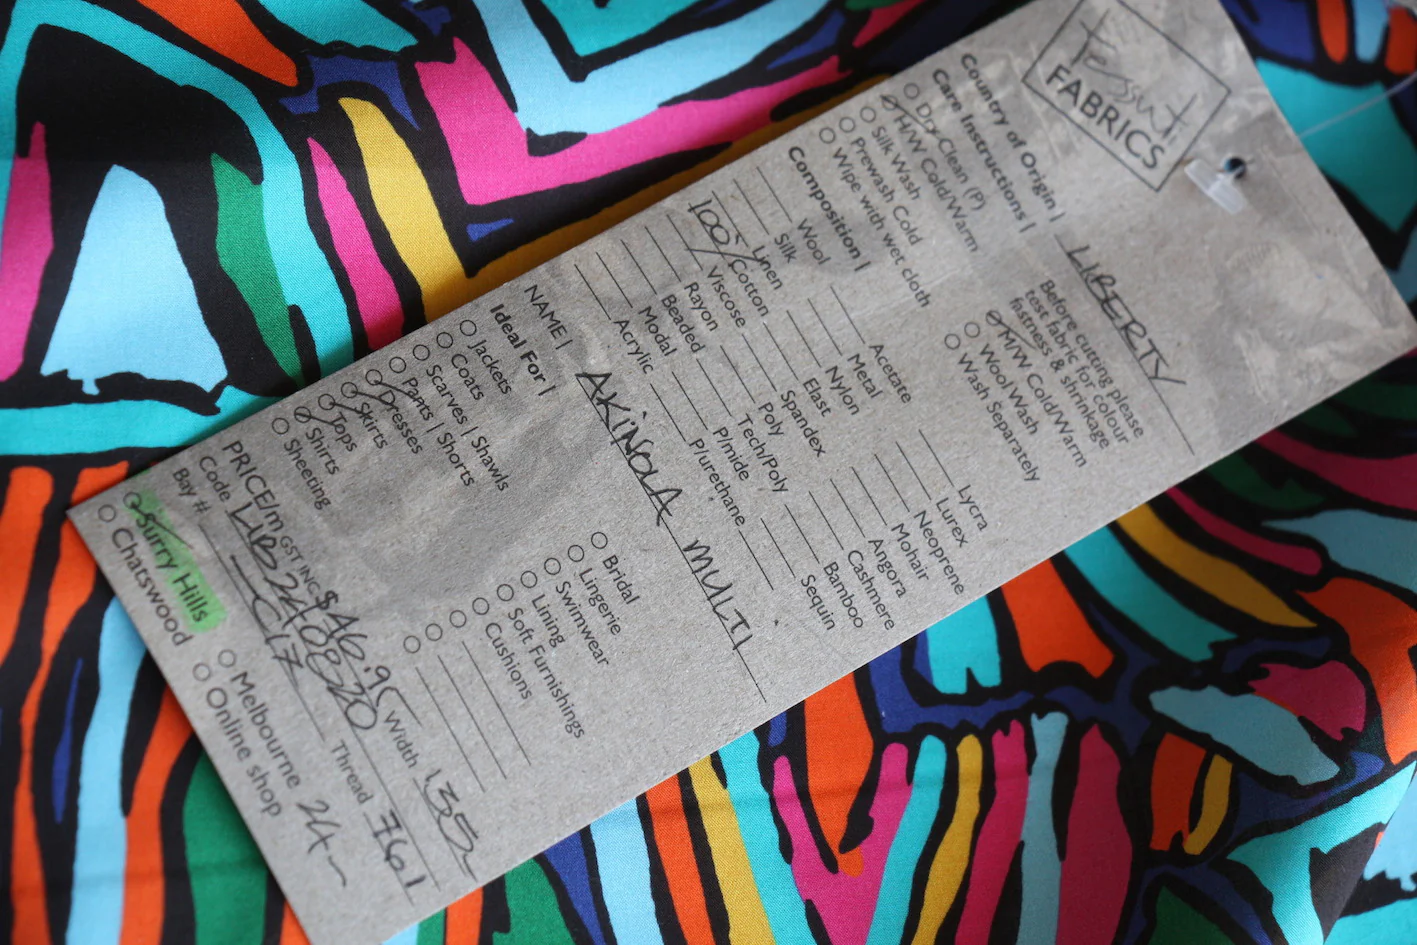 Tessuti
FABRICS
Country of Origin | LIBERTY
Care Instructions | Before cutting please
test fabric for colour
fastness & shrinkage
Dry Clean (P)
H/W Cold/Warm
Silk Wash
Prewash Cold
Wipe with wet cloth
M/W Cold/Warm
Wool Wash
Wash Separately
Composition |
Wool
Silk
Linen
100% Cotton
Viscose
Rayon
Beaded
Modal
Acrylic
Acetate
Metal
Nylon
Elast
Spandex
Poly
Tech/Poly
P/mide
P/urethane
Lycra
Lurex
Neoprene
Mohair
Angora
Cashmere
Bamboo
Sequin
NAME | AKINOLA MULTI
Ideal For |
Jackets
Coats
Scarves | Shawls
Pants | Shorts
Dresses
Skirts
Tops
Shirts
Sheeting
Bridal
Lingerie
Swimwear
Lining
Soft Furnishings
Cushions
PRICE/m GST INC $46.95 Width 135
Code LIB240820 Thread 761
Bay # C17
Surry Hills
Chatswood
Melbourne 24
Online shop